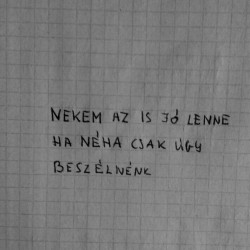 NEKEM AZ IS JÓ LENNE
HA NÉHA CSAK ÚGY
BESZÉLNÉNK